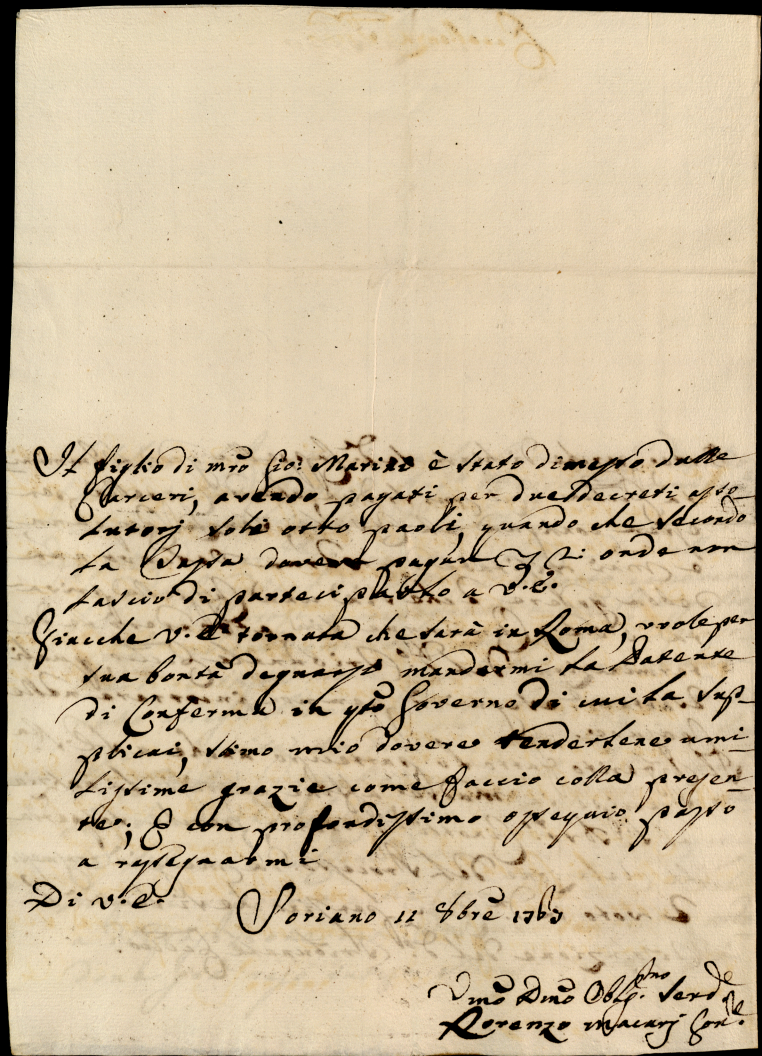 Il figlio di mro Gio: Marini è stato dimesso dalle
Carceri, avendo pagati per due decreti asso-
lutorj soli otto paoli, quando che secondo
la Tassa doveva pagar 2: onde non
lascio di parteciparlo a V.E.
Giacche V.E. tornata che sarà in Roma, vuole per
sua bontà degnarsi mandarmi la Patente
di Conferma in qto Governo di cui la sup-
plicai, stimo mio dovere rendertene umi-
lissime grazie come faccio colla presen-
te; E con profondissimo ossequio passo
a rassegnarmi
Di V.E.
Soriano 11 8bre 1763
Umo Dmo Oblgmo Serd.e
Lorenzo Macarj Gor.e